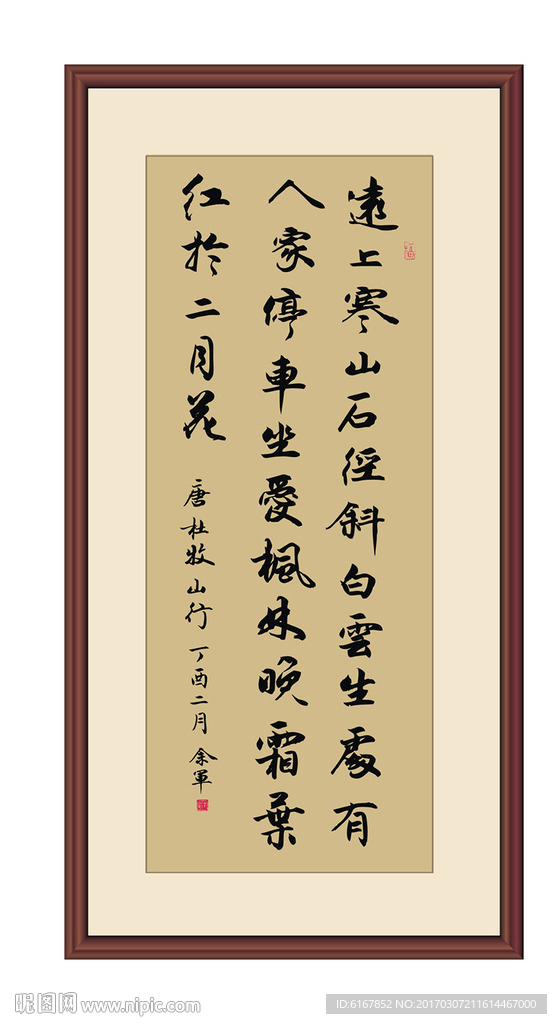 遠上寒山石徑斜白雲生處有
人家停車坐愛楓林晚霜葉
紅於二月花 唐杜牧山行 丁酉二月 余軍
昵图网 www.nipic.com
ID:6167852 NO:20170307211614467000